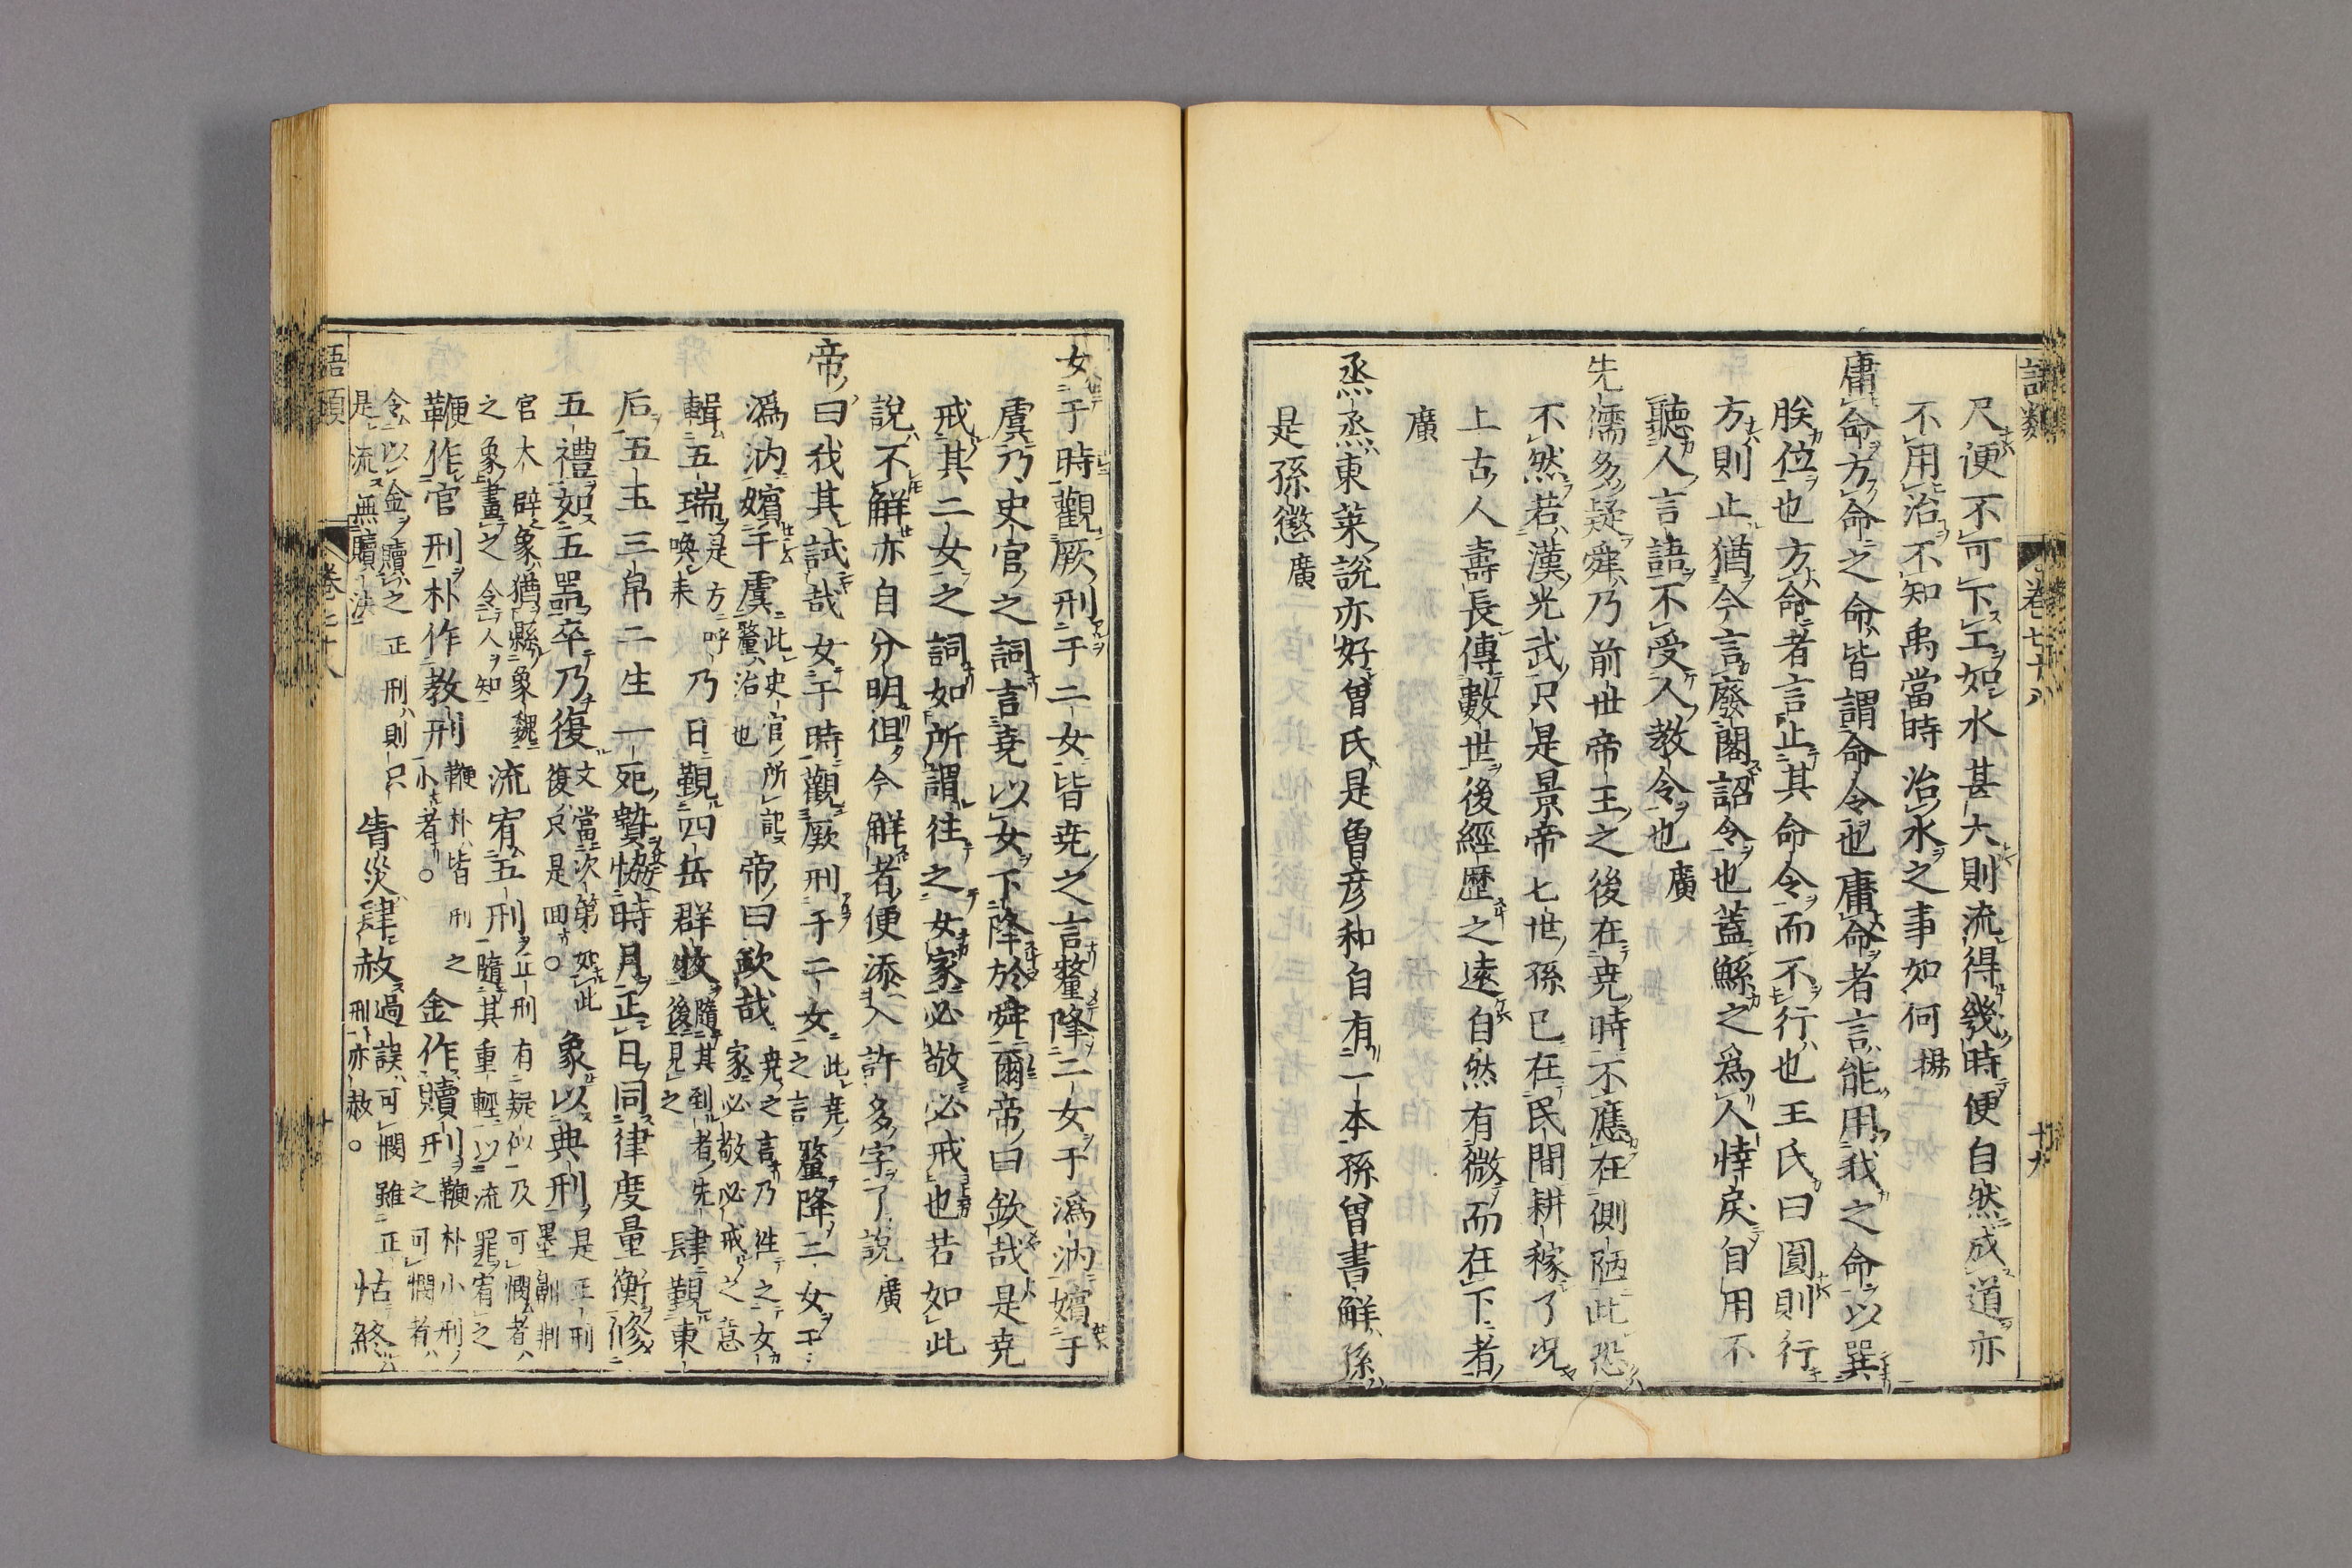 語類 卷七十八 十九
尺便不可下工如水甚大則流得幾時便自然成道亦
不用治不知禹當時治水之事如何 揚
庸命方命之命皆謂命令也庸命者言能用我之命以巽
朕位也方命者言止其命令而不行也王氏曰圓則行
方則止猶今言廢閣詔令也蓋鯀之爲人悻戾自用不
聽人言語不受人教令也 廣
先儒多疑舜乃前世帝王之後在堯時不應在側陋此恐
不然若漢光武只是景帝七世孫已在民間耕稼了況
上古人壽長傳數世後經歷之遠自然有微而在下者
廣
烝烝東萊說亦好曾氏是曾彦和自有一本孫曾書解孫
是孫懲 廣
女于時觀厥刑于二女皆堯之言釐降二女于潙汭嬪于
虞乃史官之詞言堯以女下降於舜爾帝曰欽哉是堯
戒其二女之詞如所謂往之女家必敬必戒也若如此
說不解亦自分明但今解者便添入許多字了說 廣
帝曰我其試哉女于時觀厥刑于二女 此堯之言 釐降二女于
潙汭嬪于虞 此史官所記釐治也 帝曰欽哉 堯之言乃往之女家必敬必戒之意
輯五瑞 是方呼喚來 乃日覲四岳群牧 隨其到者先後見之 肆覲東
后五玉三帛二生一死贄協時月正日同律度量衡修
五禮如五噐卒乃復 文當次第如此復只是回 ○ 象以典刑 是正刑墨劓剕
官大辟象猶縣象魏之象畫之令人知 流宥五刑 正刑有疑似及可憫者隨其重輕以流罪宥之
鞭作官刑朴作教刑 鞭朴皆刑之小者 ○ 金作贖刑 鞭朴小刑之可憫者
令以金贖之正刑則只是流無贖法 眚災肆赦 過誤可憫雖正刑亦赦 ○ 怙終
語類 卷七十八 十